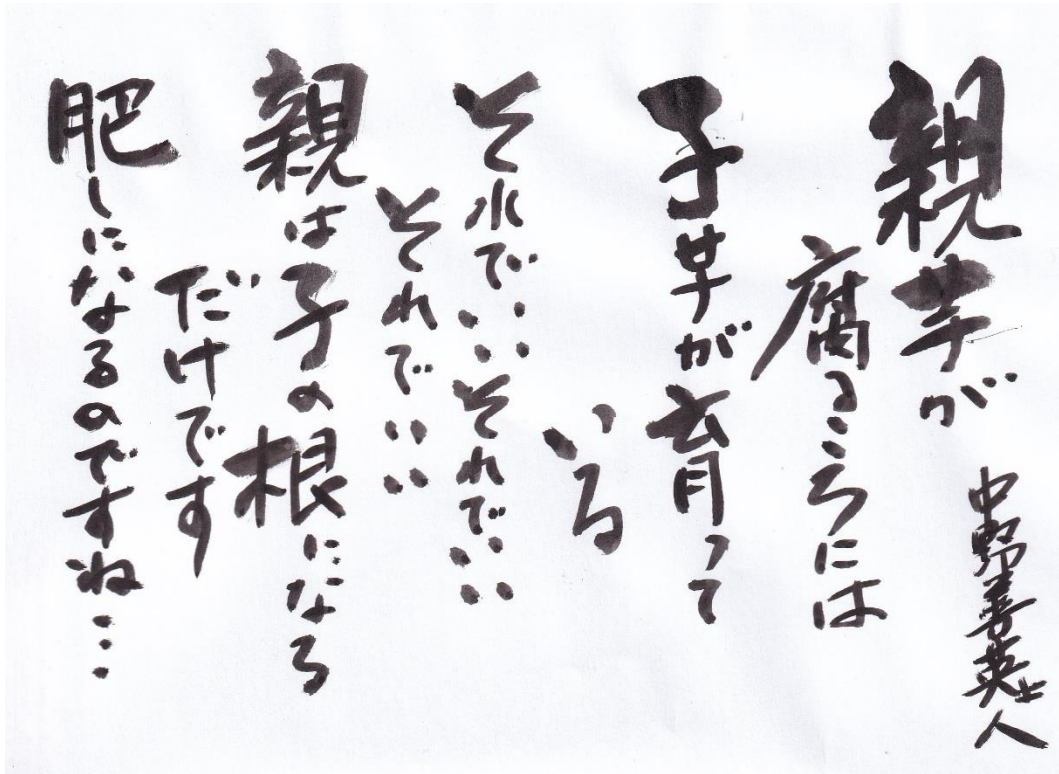 親芋が
腐るころには
子芋が育って
いる
それでいいそれでいい
それでいい
親は子の根になる
だけです
肥しになるのですね…
中野善英上人